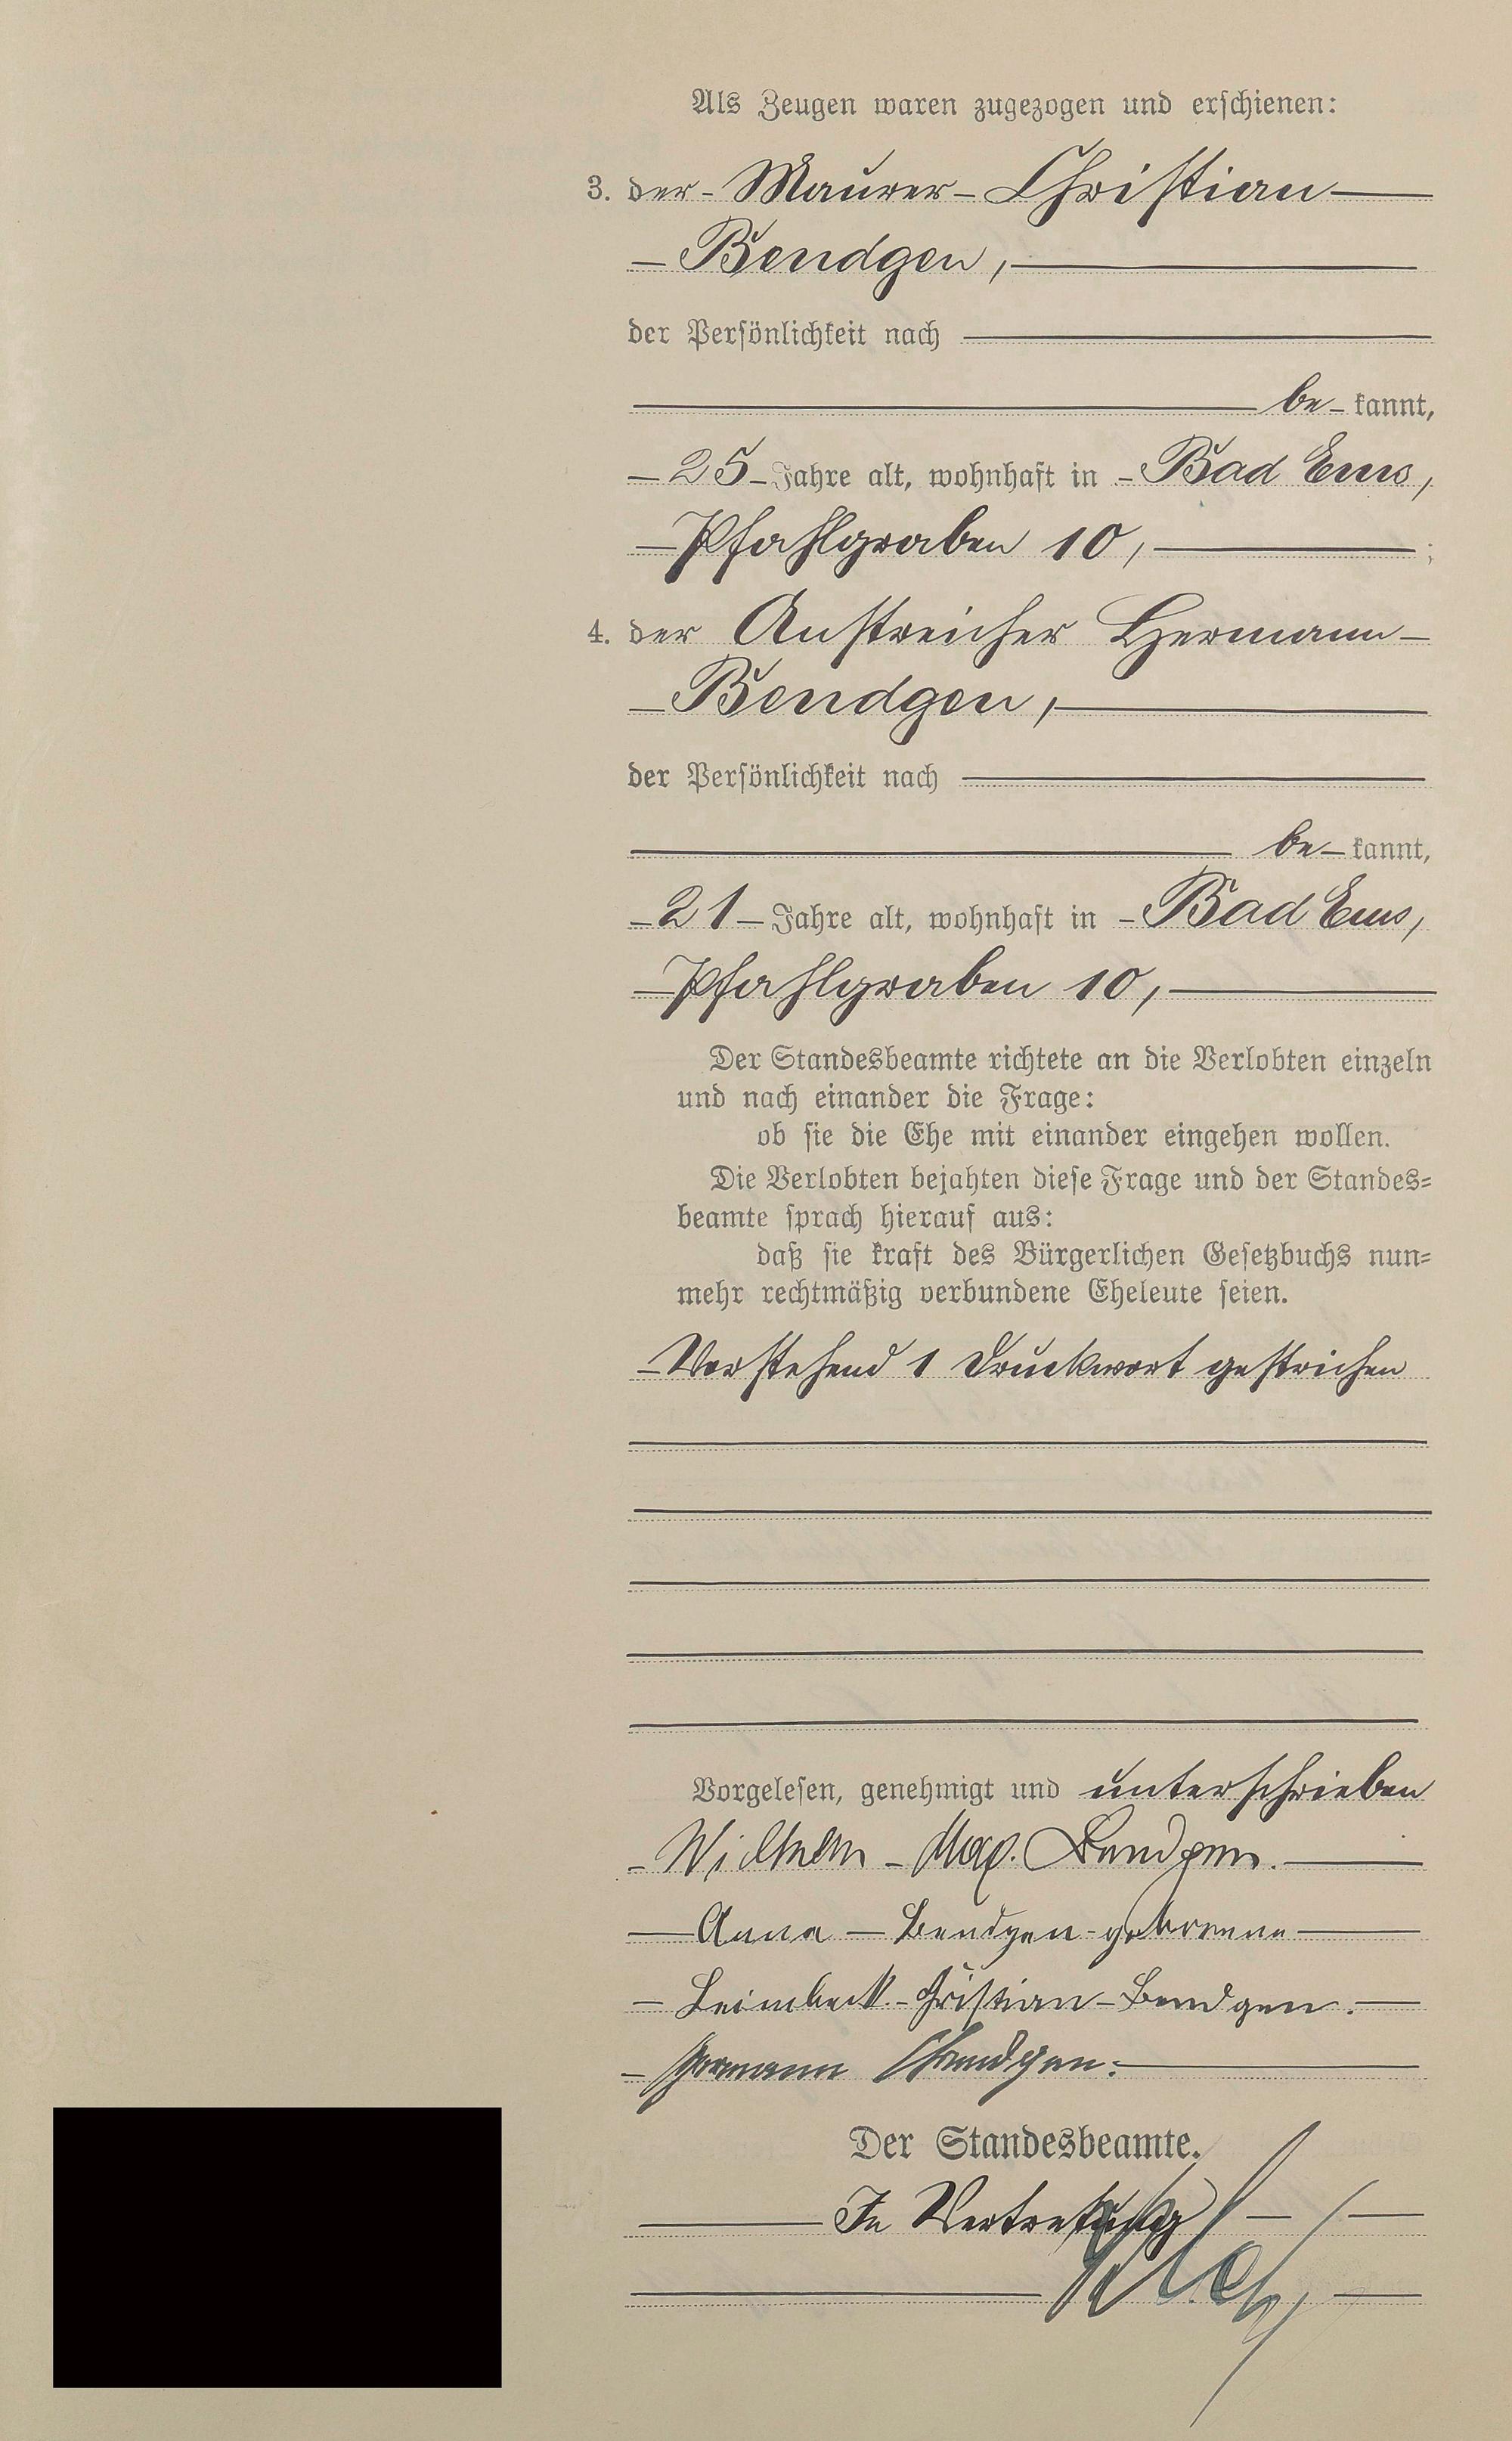 Als Zeugen waren zugezogen und erschienen:
3. der Maurer Christian
Bendgen,
der Persönlichkeit nach
be kannt,
25 Jahre alt, wohnhaft in Bad Ems,
Pfahlgraben 10, ;
4. der Anstreicher Hermann
Bendgen,
der Persönlichkeit nach
be kannt,
21 Jahre alt, wohnhaft in Bad Ems,
Pfahlgraben 10,
Der Standesbeamte richtete an die Verlobten einzeln
und nach einander die Frage:
ob sie die Ehe mit einander eingehen wollen.
Die Verlobten bejahten diese Frage und der Standes-
beamte sprach hierauf aus:
daß sie kraft des Bürgerlichen Gesetzbuchs nun-
mehr rechtmäßig verbundene Eheleute seien.
Vorstehend 1 Druckwort gestrichen
Vorgelesen, genehmigt und unterschrieben
Wilhelm Bendgen.
Anna Bendgen geborene
Leimbach. Christian Bendgen.
Hermann Bendgen.
Der Standesbeamte.
In Vertretung